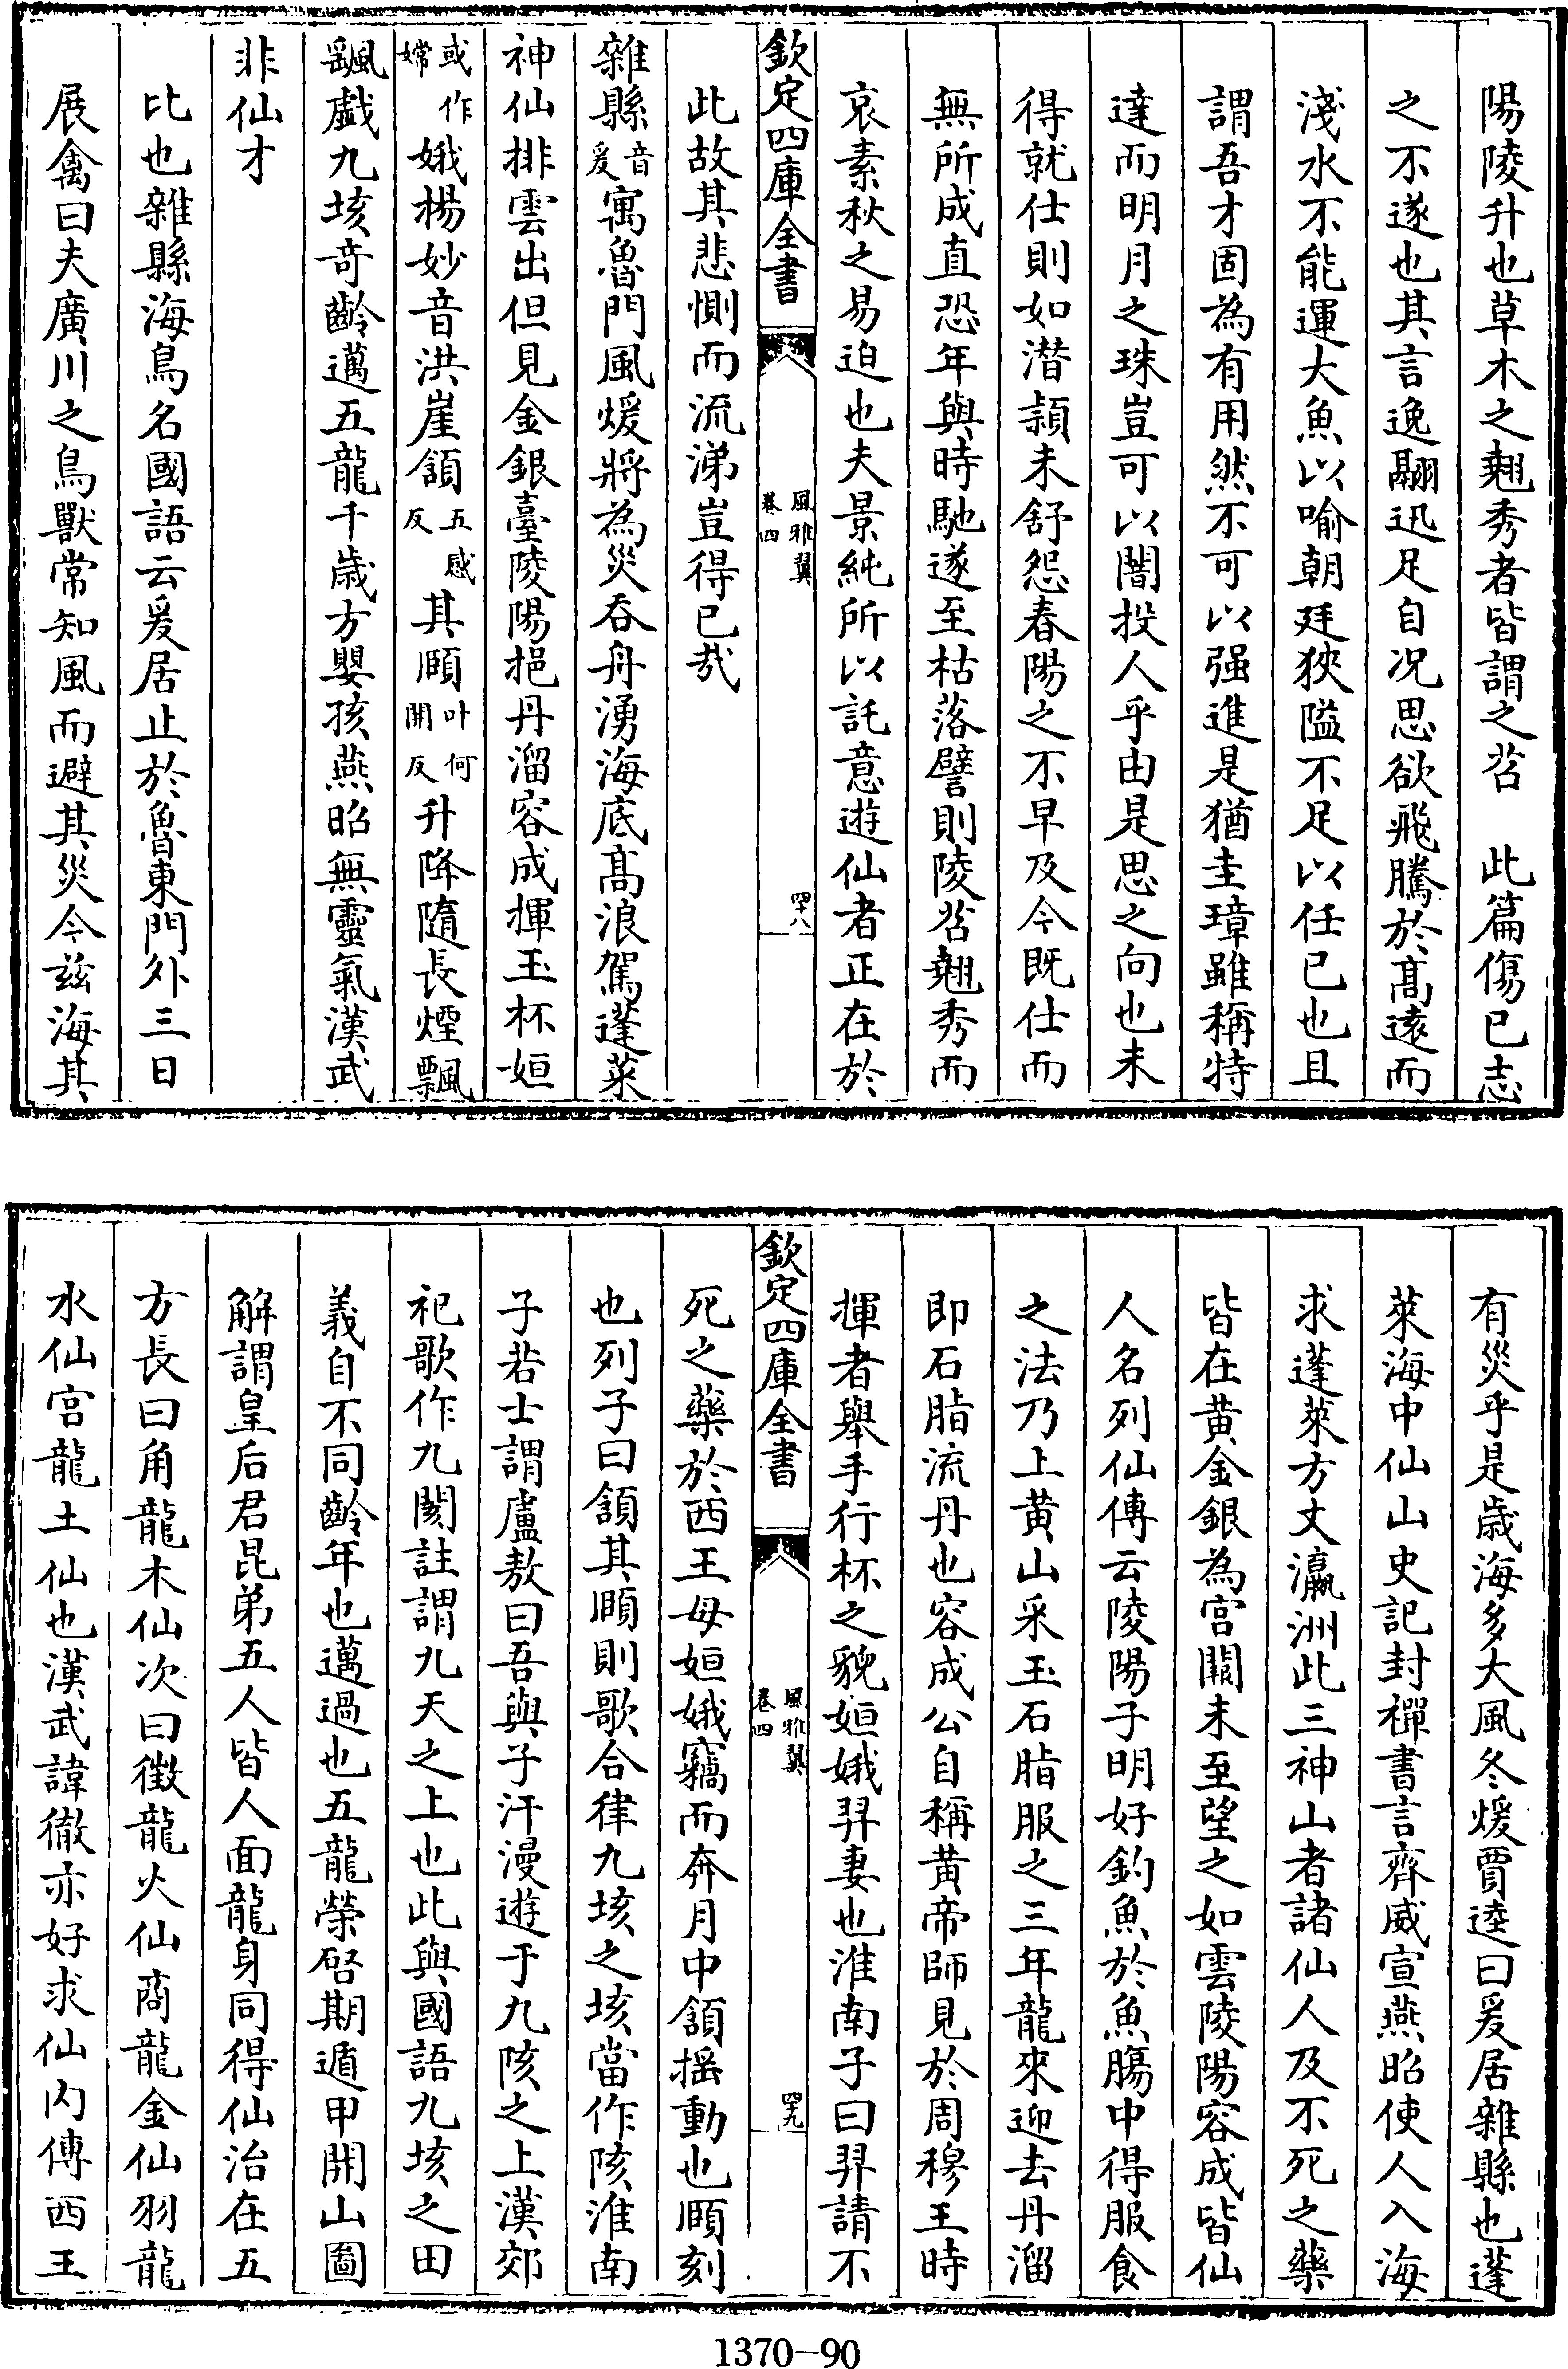 陽陵升也草木之翹秀者皆謂之苕　此篇傷已志
之不遂也其言逸翮迅足自况思欲飛騰於髙逺而
淺水不能運大魚以喻朝廷狹隘不足以任已也且
謂吾才固為有用然不可以强進是猶圭璋雖稱特
達而明月之珠豈可以闇投人乎由是思之向也未
得就仕則如潛頴未舒怨春陽之不早及今既仕而
無所成直恐年與時馳遂至枯落譬則陵苕翹秀而
哀素秋之易迫也夫景純所以託意遊仙者正在於
欽定四庫全書
風雅翼
卷四
四十八
此故其悲惻而流涕豈得已㢤
雜縣音爰寓魯門風煖將為災吞舟湧海底髙浪駕蓬萊
神仙排雲出但見金銀臺陵陽挹丹溜容成揮玉杯姮
或作嫦娥楊妙音洪崖頷五感反其頤叶何開反升降隨長煙飄
颻戯九垓竒齡邁五龍千歳方嬰孩燕昭無靈氣漢武
非仙才
比也雜縣海鳥名國語云爰居止於魯東門外三日
展禽曰夫廣川之鳥獸常知風而避其災今兹海其
有災乎是歳海多大風冬煖賈逵曰爰居雜縣也蓬
萊海中仙山史記封禪書言齊威宣燕昭使人入海
求蓬萊方丈瀛洲此三神山者諸仙人及不死之藥
皆在黄金銀為宫闕未至望之如雲陵陽容成皆仙
人名列仙傳云陵陽子明好釣魚於魚膓中得服食
之法乃上黄山采玉石脂服之三年龍來迎去丹溜
即石脂流丹也容成公自稱黄帝師見於周穆王時
揮者舉手行杯之貌姮娥羿妻也淮南子曰羿請不
欽定四庫全書
風雅翼
卷四
四十九
死之藥於西王母姮娥竊而奔月中頷揺動也頤刻
也列子曰頷其頤則歌合律九垓之垓當作陔淮南
子若士謂盧敖曰吾與子汗漫遊于九陔之上漢郊
祀歌作九閡註謂九天之上也此與國語九垓之田
義自不同齡年也邁過也五龍榮啓期遁甲開山圖
解謂皇后君昆弟五人皆人面龍身同得仙治在五
方長曰角龍木仙次曰徵龍火仙商龍金仙羽龍
水仙宫龍土仙也漢武諱徹亦好求仙内傳西王
1370-90